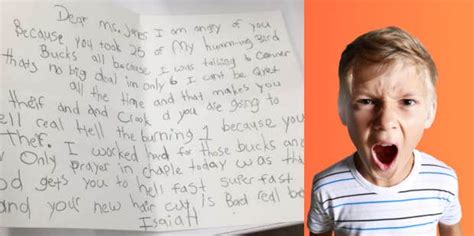 Dear Ms. Jones I am angry of you
Because you took 25 of My humming Bird
Bucks all because I was talking to Conner
thats no big deal im only 6 I cant be Quiet
all the time and that makes you
theif and and Crook d you are going to
ell real Hell the burning 1 because you
Theif. I worked hard for those bucks and
Only prayer in chaple today was tha
od gets you to hell fast super fast
and your new hair cut is Bad real ba
IsaiaH